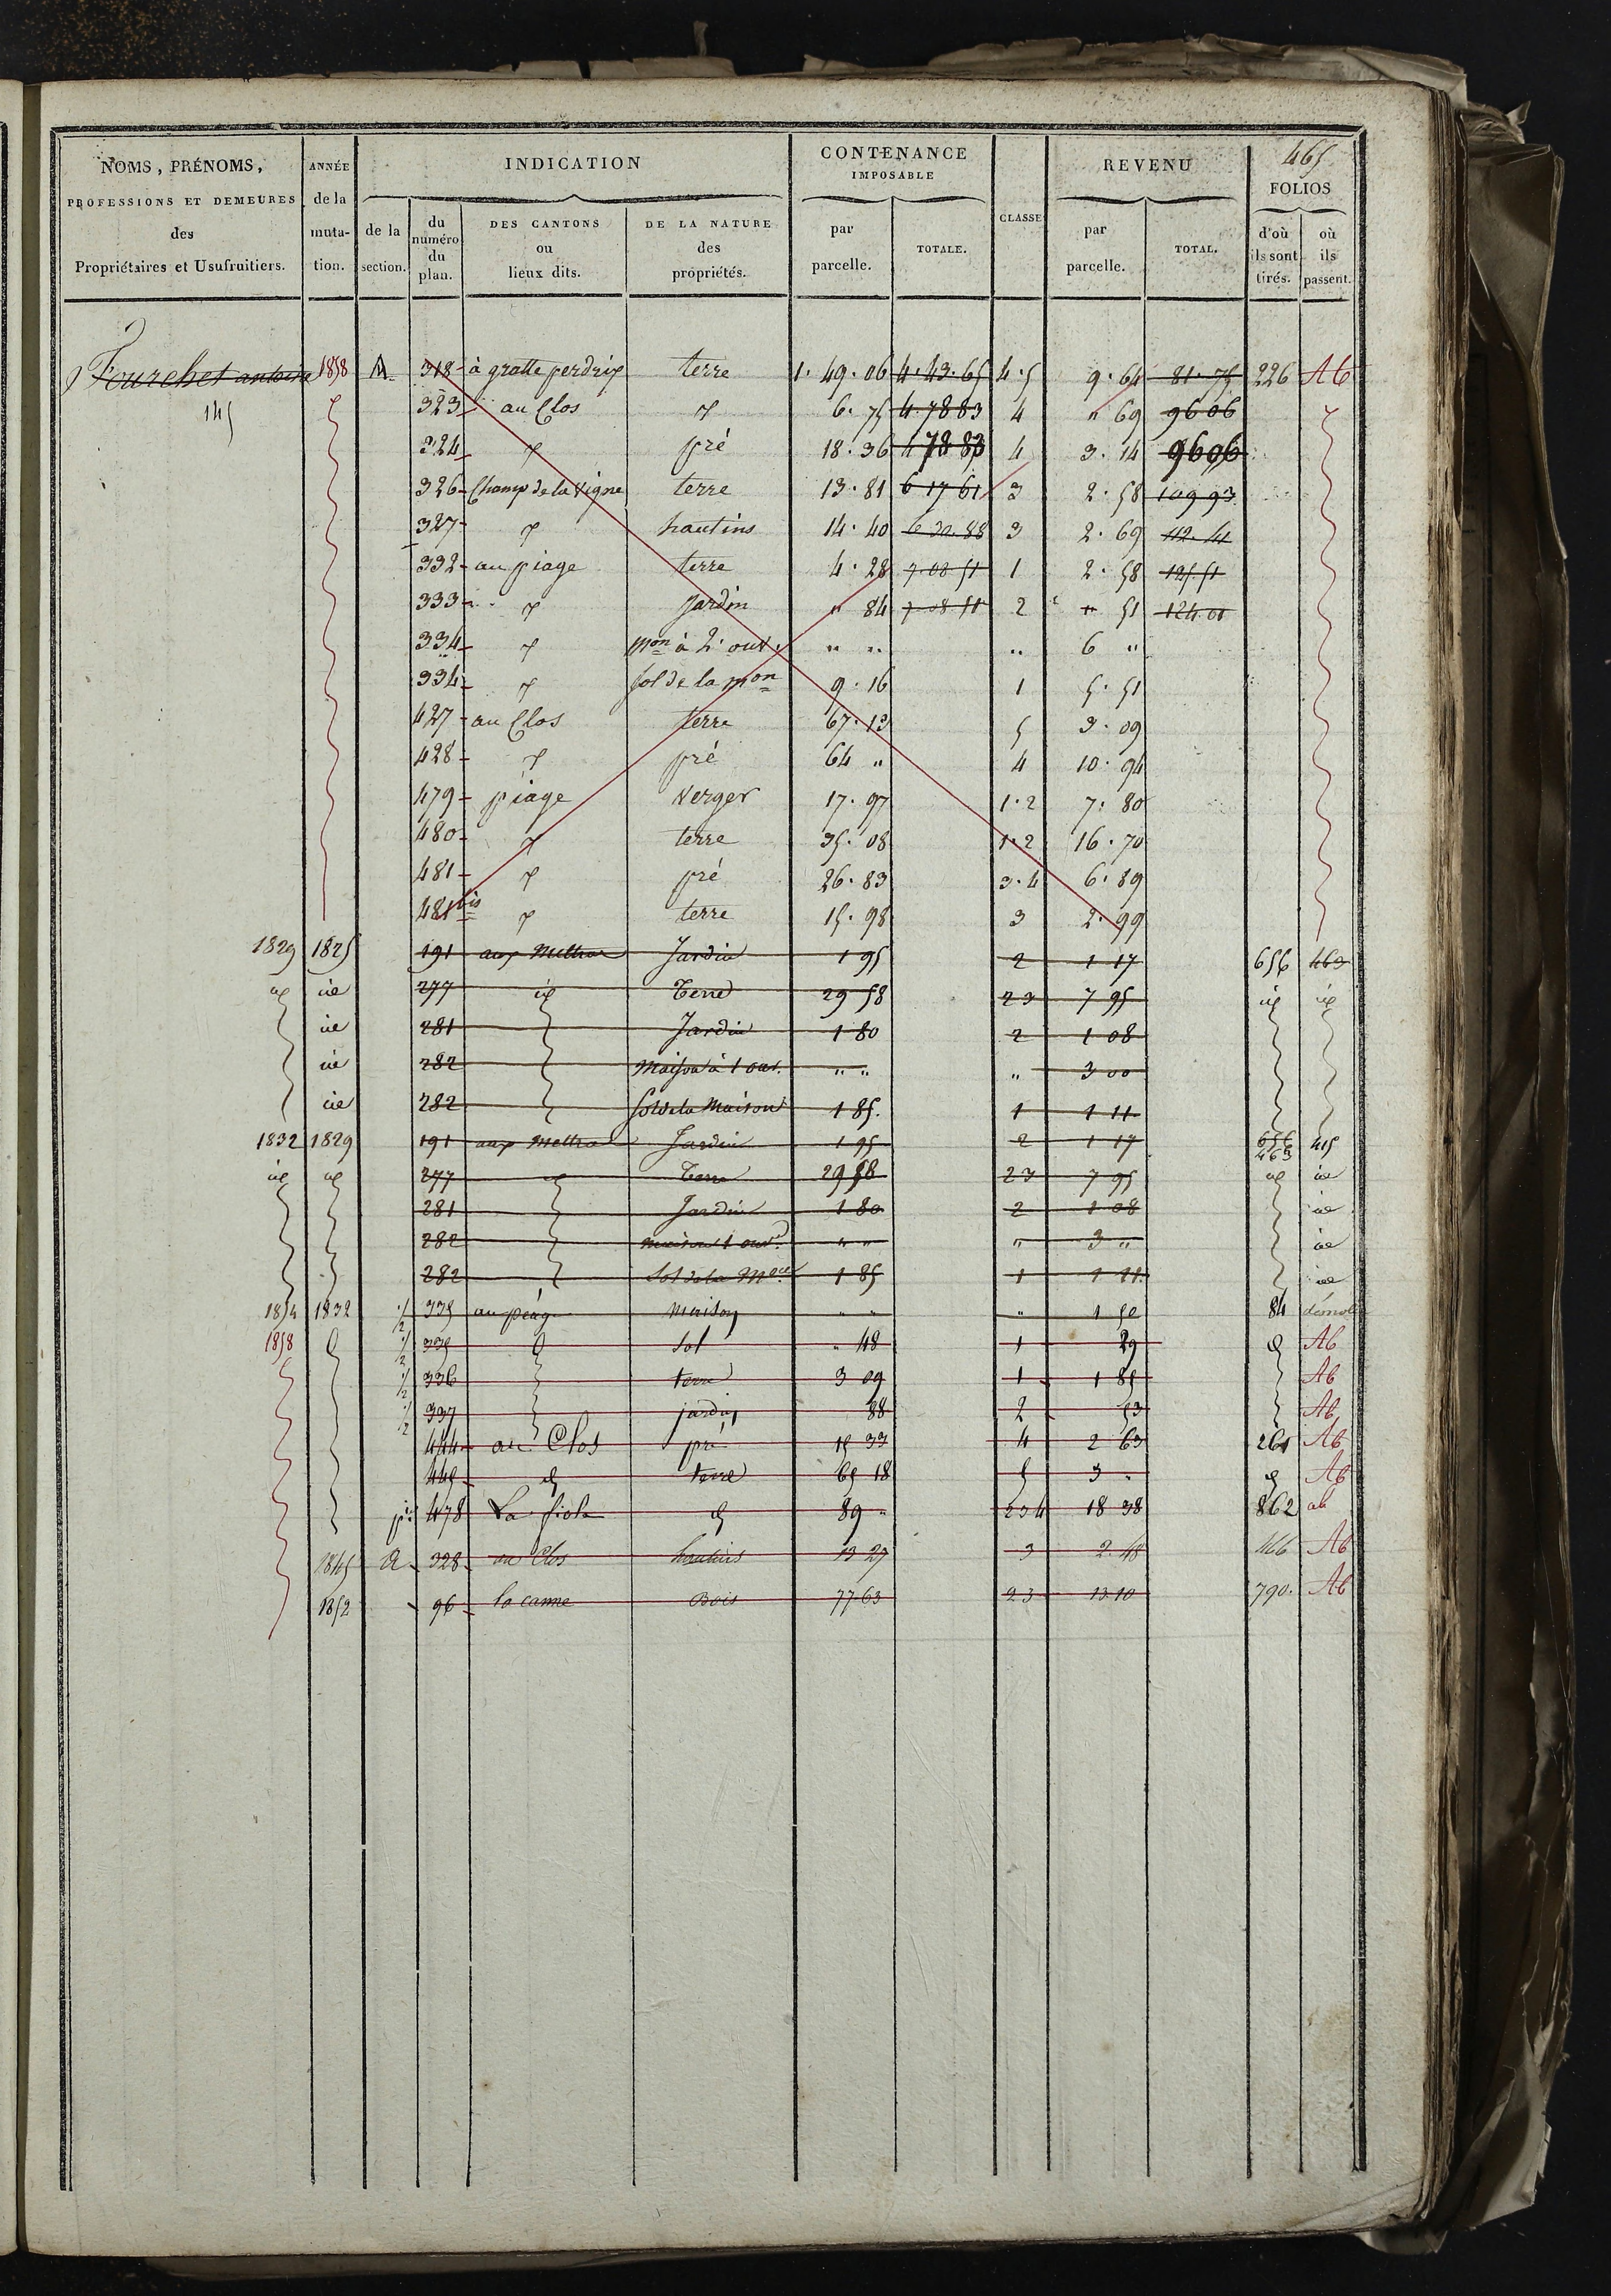 465
NOMS, PRÉNOMS, ANNÉE INDICATION CONTENANCE REVENU
IMPOSABLE FOLIOS
PROFESSIONS ET DEMEURES de la
des muta- de la du numéro du plan. DES CANTONS ou lieux dits. DE LA NATURE des propriétés. par parcelle. TOTALE. CLASSE par parcelle. TOTAL. d'où ils sont tirés. où ils passent.
Propriétaires et Usufruitiers. tion. section.
Fourchet antoine 1858 A 318 à gratte perdrix terre 1. 49. 06 4. 43. 65 4. 5 9. 64 81. 75 226 Ab
145 323 au Clos 6. 75 4. 78 83 4 " 69 96 06
324 pré 18. 36 4 78 83 4 3. 14 96 06
326 Champ de la Vigne terre 13. 81 6 17 61 3 2. 58 109 93
327 hautins 14. 40 6 32. 88 3 2. 69 112. 41
332 au piage terre 4. 28 7. 08 51 1 2. 58 125. 51
333 Jardin " 84 7. 08 51 2 " 51 124. 01
334 mon à 2. ouv. " " " 6 "
334 sol de la mon 9. 16 1 5. 51
427 au Clos terre 67. 13 5 3. 09
428 pré 64 " 4 10. 94
479 piage Verger 17. 97 1. 2 7. 80
480 terre 35. 08 1. 2 16. 70
481 pré 26. 83 3. 4 6. 89
481 bis terre 15. 98 3 2. 99
1829 1825 191 aux Mettras Jardin 1 95 2 1 17 656 463
id id 277 id Terre 29 58 2 3 7 95 id id
id 281 Jardin 1 80 2 1 08
id 282 Maison à 1 ouv. " " " 3 00
id 282 Sol de la Maison 1 85. 1 1 11
1832 1829 191 aux Mettras Jardin 1 95 2 1 17 656 463 415
id id 277 id Terre 29 58 2 3 7 95 id id
281 Jardin 1 80 2 1 08 id
282 maison 1 ouv. " " " 3 " id
282 Sol de la Mon 1 85 1 1 11 id
1854 1832 1/2 335 au péage Maison " " " 1 50 84 démoli
1858 d 1/2 335 d Sol " 48 1 29 d Ab
1/2 336 terre 3 09 1 1 85 Ab
1/2 337 jardin 88 2 53 Ab
444 au Clos pré 15 33 4 2 63 261 Ab
445 d terre 65 18 5 3 " d Ab
pie 478 La fiola d 89 " 2 3 4 18 38 862 ab
1845 A 328 au Clos hautins 13 27 3 2. 48 166 Ab
1852 96 la canne Bois 77 63 2 3 13 10 790. Ab